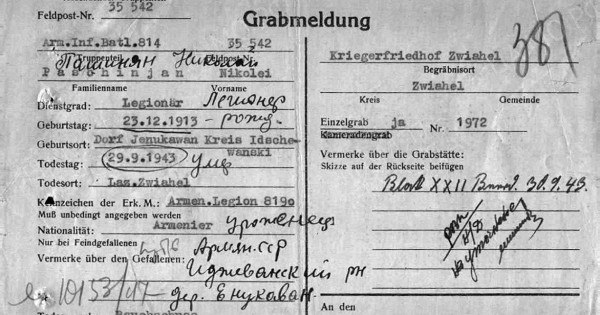 Feldpost-Nr. 35 542
Grabmeldung
Arm.Inf.Batl.814 35 542
Truppenteil Feldpost-Nr.
Пашинян Николай
Paschinjan Nikolei
Familienname Vorname
Dienstgrad: Legionär Легионер
Geburtstag: 23.12.1913 – рожд.
Geburtsort: Dorf Jenukawan Kreis Idsche-
wanski
Todestag: 29.9.1943 умер
Todesort: Laz.Zwiahel
Kennzeichen der Erk. M.: Armen.Legion 8190
Muß unbedingt angegeben werden
Nationalität: Armenier уроженец
Nur bei Feindgefallenen
Армян.ССР
Vermerke über den Gefallenen:
Иджеванский рн
10153/
дер. Енукаван.
Kriegerfriedhof Zwiahel
Begräbnisort
Zwiahel
Kreis Gemeinde
Einzelgrab ja Nr. 1972
Kameradengrab
Vermerke über die Grabstätte:
Skizze auf der Rückseite beifügen
Block XXII 30.9.43.
An den
387